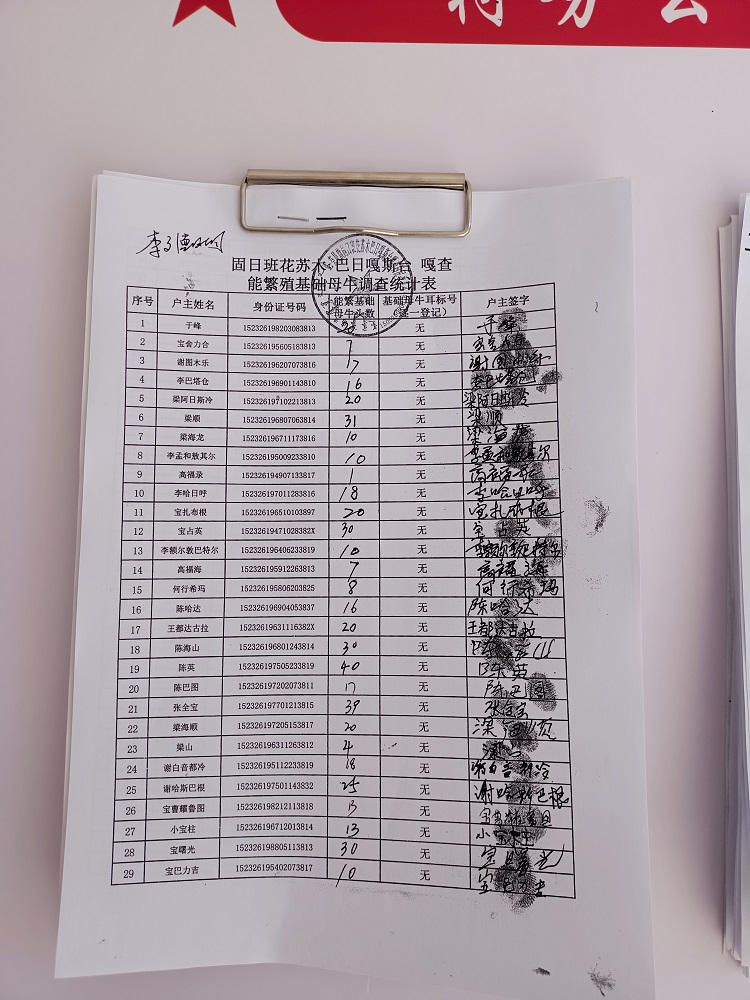 固日班花苏木 巴日嘎斯台 嘎查
能繁殖基础母牛调查统计表
序号 户主姓名 身份证号码 能繁基础母牛头数 基础母牛耳标号（逐一登记） 户主签字
1 于峰 152326198203083813 无 于峰
2 宝会力合 152326195605183813 7 无
3 谢图木乐 152326196207073816 17 无
4 李巴塔仓 152326196901143810 16 无
5 梁阿日斯冷 152326197102213813 20 无 梁阿日斯冷
6 梁顺 152326196807063814 31 无 梁顺
7 梁海龙 152326196711173816 10 无 梁海龙
8 李孟和敖其尔 152326195009233810 10 无
9 高福录 152326194907133817 1 无
10 李哈日呼 152326197011283816 18 无 李哈日呼
11 宝扎布根 152326196510103897 20 无 宝扎布根
12 宝占英 15232619471028382X 30 无 宝占英
13 李额尔敦巴特尔 152326196406233819 10 无 李额尔敦巴特尔
14 高福海 152326195912263813 7 无 高福海
15 何行希玛 152326195806203825 8 无 何行希玛
16 陈哈达 152326196904053837 16 无 陈哈达
17 王都达古拉 15232619631116382X 20 无 王都达古拉
18 陈海山 152326196801243814 30 无
19 陈英 152326197505233819 40 无 陈英
20 陈巴图 152326197202073811 17 无 陈巴图
21 张全宝 152326197701213815 39 无 张全宝
22 梁海顺 152326197205153817 20 无 梁海顺
23 梁山 152326196311263812 4 无
24 谢白音都冷 152326195112233819 18 无
25 谢哈斯巴根 152326197501143832 25 无 谢哈斯巴根
26 宝曹耀鲁图 152326198212113818 13 无
27 小宝柱 152326196712013814 13 无 小宝柱
28 宝曙光 152326198805113813 30 无
29 宝巴力吉 152326195402073817 10 无